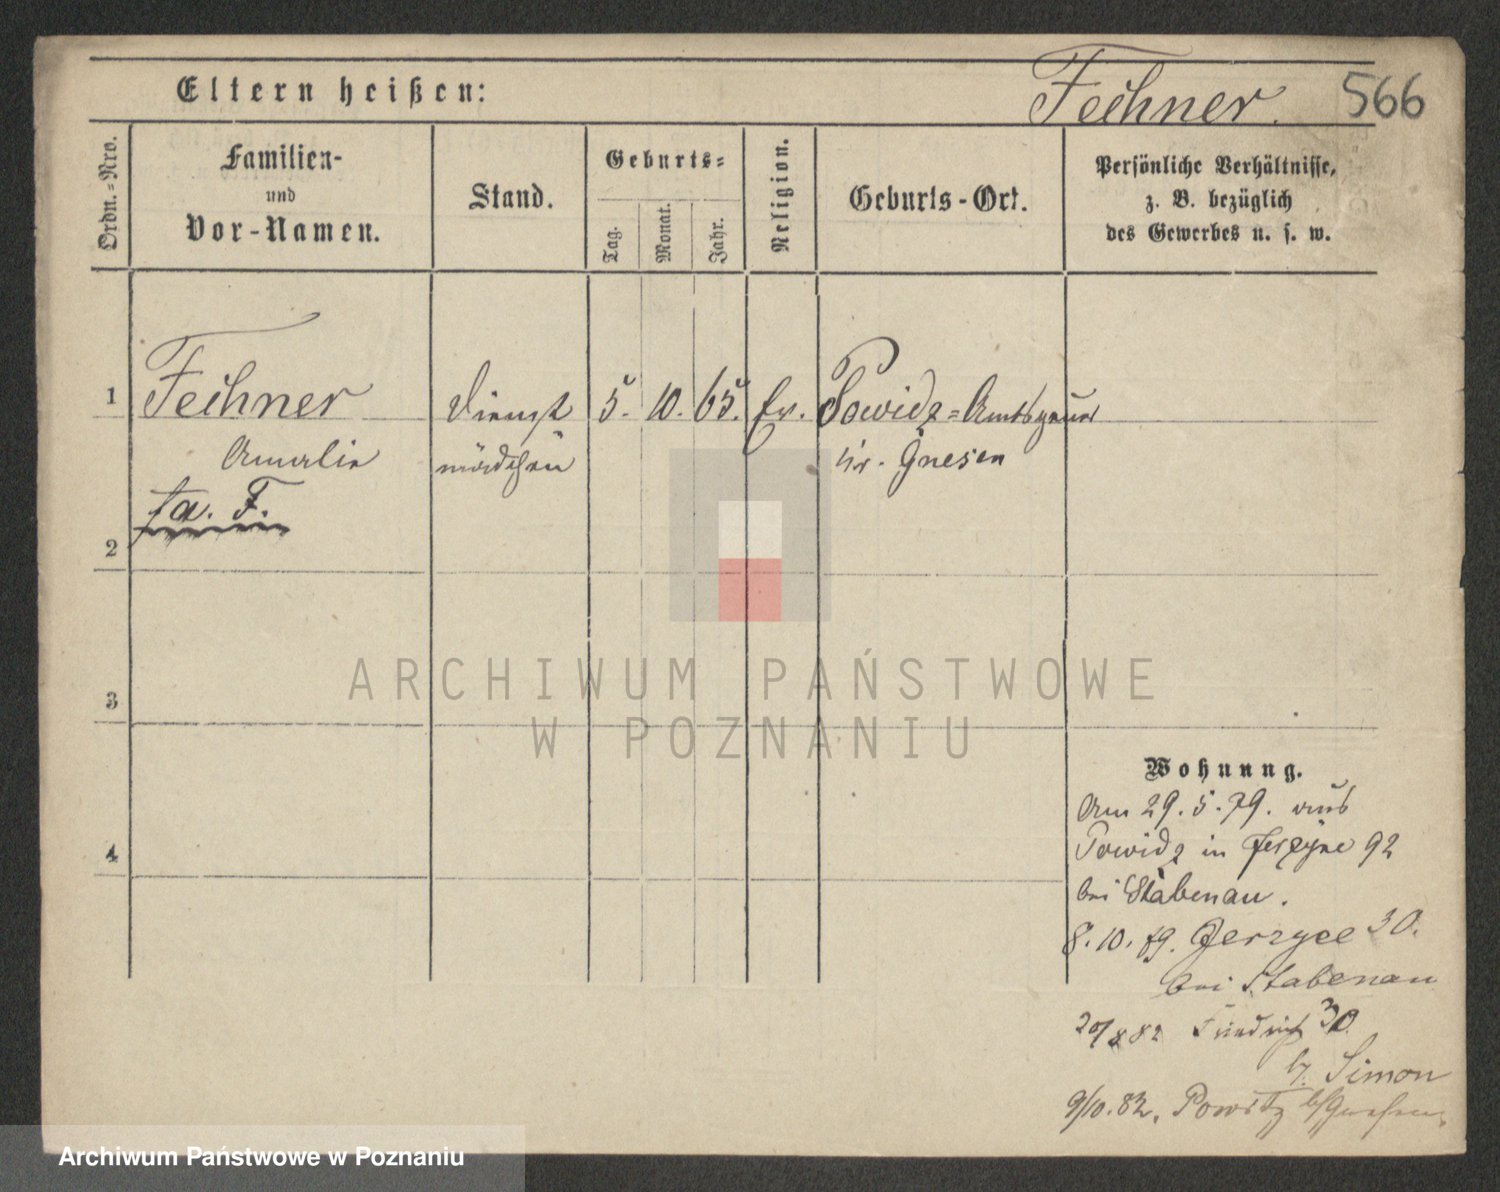 Eltern heißen:
Fechner. 566
Ordn.-Nro.
Familien-
und
Vor-Namen.
Stand.
Geburts-
Tag.
Monat.
Jahr.
Religion.
Geburts-Ort.
Persönliche Verhältnisse,
z. B. bezüglich
des Gewerbes u. s. w.
1 Fechner Dienst 5. 10. 65. Ev. Powidz-Amtsgrund
Amalie mädchen Kr. Gnesen
fa. F.
2
3
4
Wohnung.
Am 29. 5. 79. aus
Powidz in Jerzyce 92
bei Stabenau.
8. 10. 79. Jerzyce 30.
bei Stabenau
20/8 82 Friedrich 30
b. Simon
9/10. 82. Powitz b/Gnesen.
ARCHIWUM PAŃSTWOWE
W POZNANIU
Archiwum Państwowe w Poznaniu